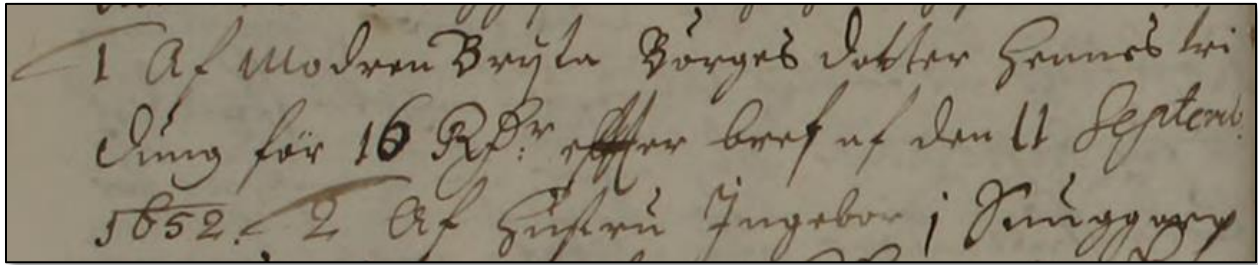 1 Af Modren Bryta Börges dotter hennes tri
dung för 16 RDr effter bref af den 11 Septemb.
1652. 2 Af Hustru Ingebor i Snuggarp